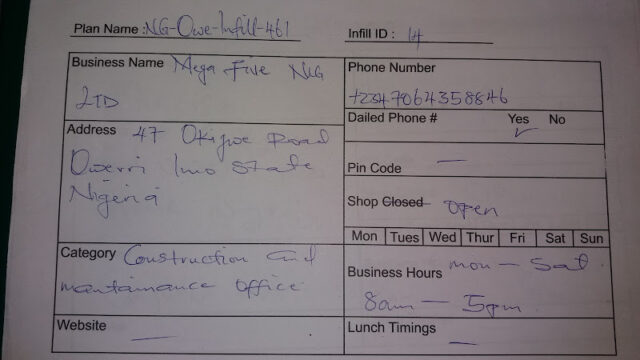 Plan Name : NG-Owe-Infill-461
Infill ID : 14
Business Name Mega Five NIG
LTD
Phone Number
+2347064358846
Dailed Phone # Yes No
✓
Address 47 Okigwe Road
Owerri Imo State
Nigeria
Pin Code —
Shop Closed open
Mon Tues Wed Thur Fri Sat Sun
Category Construction and
mantainance office
Business Hours mon — Sat
8am — 5pm.
Website —
Lunch Timings —